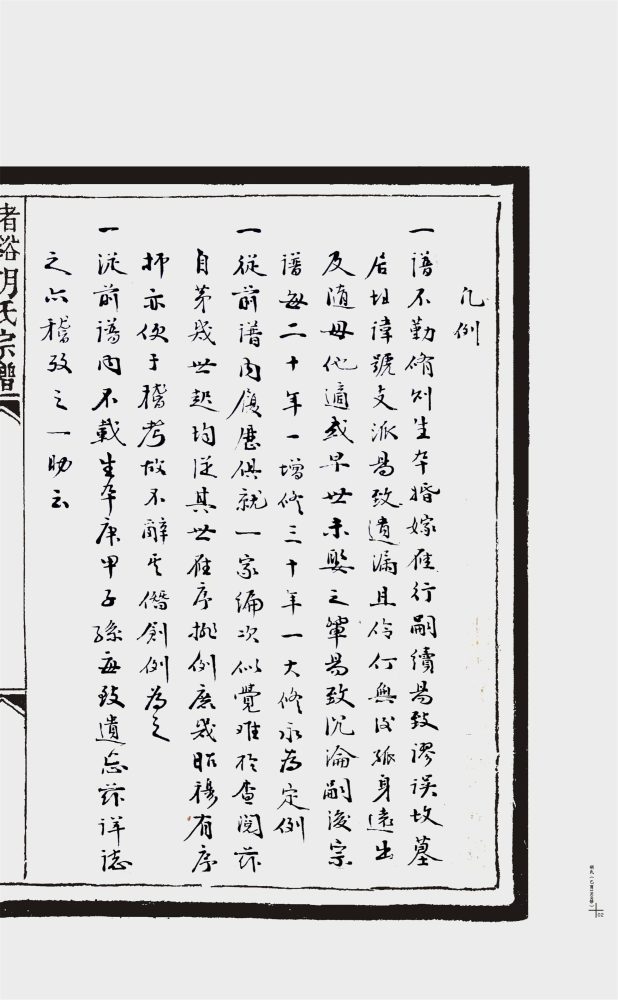 凡例
一譜不勤脩則生卒婚嫁雁行嗣續易致謬误坟墓
居址諱號支派易致遺漏且伶仃無後孤身遠出
及随母他適或早世未娶之輩易致沉淪嗣後宗
譜每二十年一增修三十年一大修永為定例
一從前譜内履歷俱就一家编次似覺难於查閲茲
自苐幾世起均從其世雁序排例庶幾昭穆有序
抑亦便于稽考故不辭僭創例為之
一從前譜内不載生卒庚甲子孫每致遺忘茲详誌
之亦稽攷之一助云
者谿胡氏宗譜
02